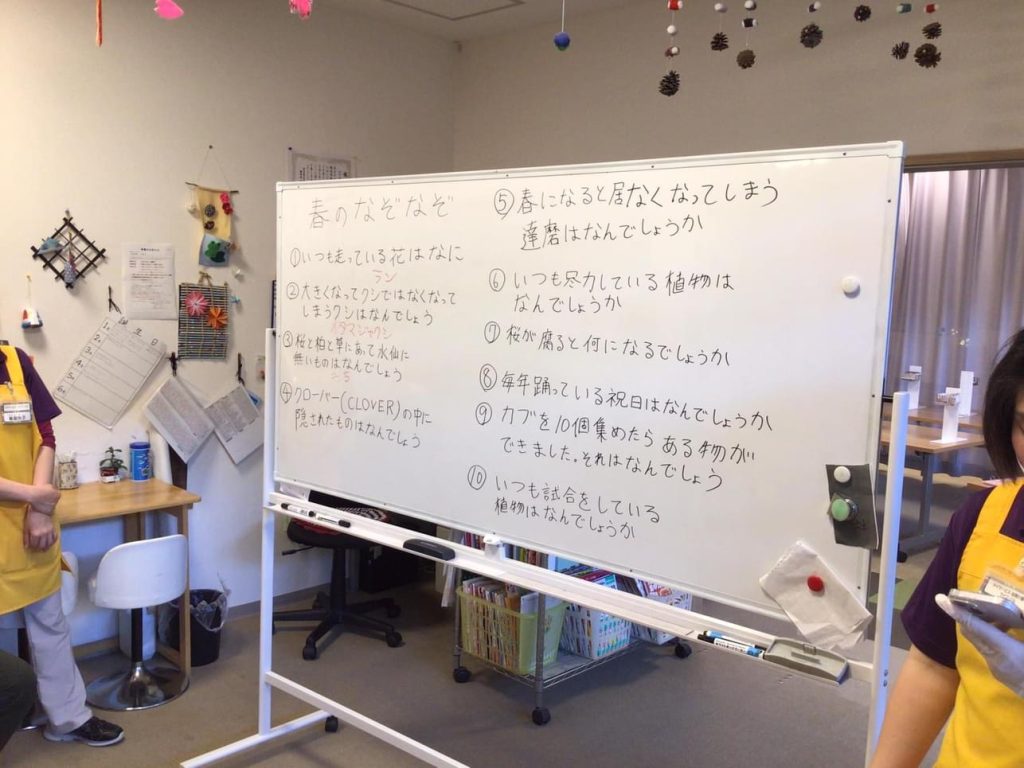 春のなぞなぞ
①いつも走っている花はなに
ラン
②大きくなってクシではなくなって
しまうクシはなんでしょう
オタマジャクシ
③桜と柏と草にあって水仙に
無いものはなんでしょう
もち
④クローバー(CLOVER)の中に
隠されたものはなんでしょう
⑤春になると居なくなってしまう
達磨はなんでしょうか
⑥いつも尽力している植物は
なんでしょうか
⑦桜が腐ると何になるでしょうか
⑧毎年踊っている祝日はなんでしょうか
⑨カブを10個集めたらある物が
できました。それはなんでしょう
⑩いつも試合をしている
植物はなんでしょうか